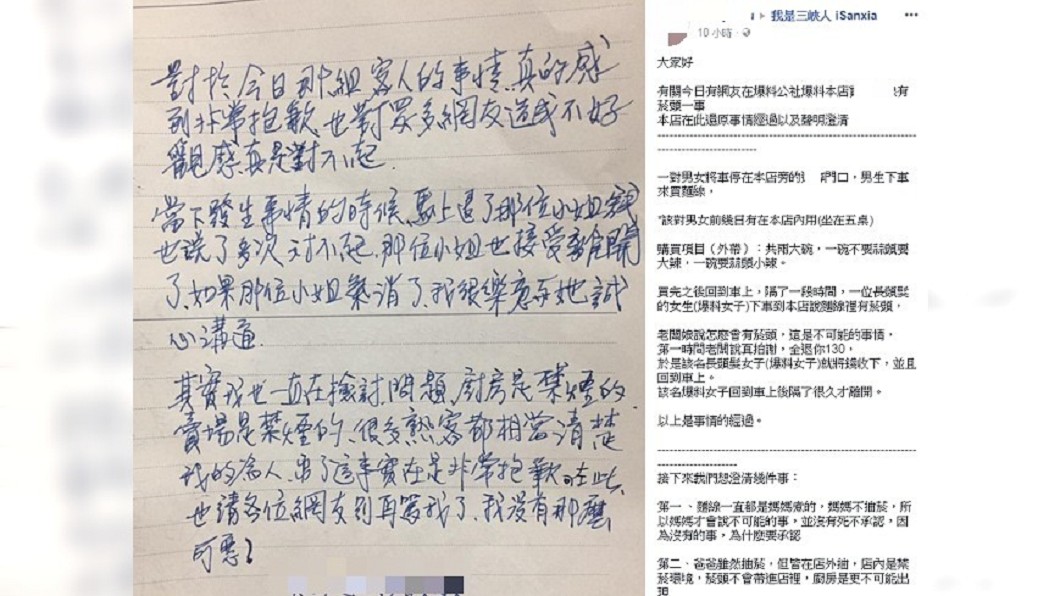 對於今日那組客人的事情,真的感
到非常抱歉,也對眾多網友造成不好
觀感真是對不起.
當下發生事情的時候,馬上退了那位小姐錢
也說了多次対不起,那位小姐也接受離開
了,如果那位小姐氣消了,我很樂意和她誠
心溝通.
其實我也一直在檢討問題,廚房是禁煙的,
賣場是禁煙的,很多熟客都相當清楚
我的為人,出了這事實在是非常抱歉,在此
也請各位網友別再罵我了,我沒有那麼
可惡!
我是三峽人 iSanxia
10 小時
大家好
有關今日有網友在爆料公社爆料本店 有
菸頭一事
本店在此還原事情經過以及聲明澄清
一對男女將車停在本店旁的 門口,男生下車
來買麵線,
*該對男女前幾日有在本店內用(坐在五桌)
購買項目(外帶):共兩大碗,一碗不要蒜頭要
大辣,一碗要蒜頭小辣。
買完之後回到車上,隔了一段時間,一位長頭髮
的女生(爆料女子)下車到本店說麵線裡有菸頭,
老闆娘說怎麼會有菸頭,這是不可能的事情,
第一時間老闆說真拍謝,全退你130,
於是該名長頭髮女子(爆料女子)就將錢收下,並且
回到車上。
該名爆料女子回到車上後隔了很久才離開。
以上是事情的經過。
接下來我們想澄清幾件事:
第一、麵線一直都是媽媽煮的,媽媽不抽菸,所
以媽媽才會說不可能的事,並沒有死不承認,因
為沒有的事,為什麼要承認
第二、爸爸雖然抽菸,但皆在店外抽,店內是禁
菸環境,菸頭不會帶進店裡,廚房是更不可能出
現